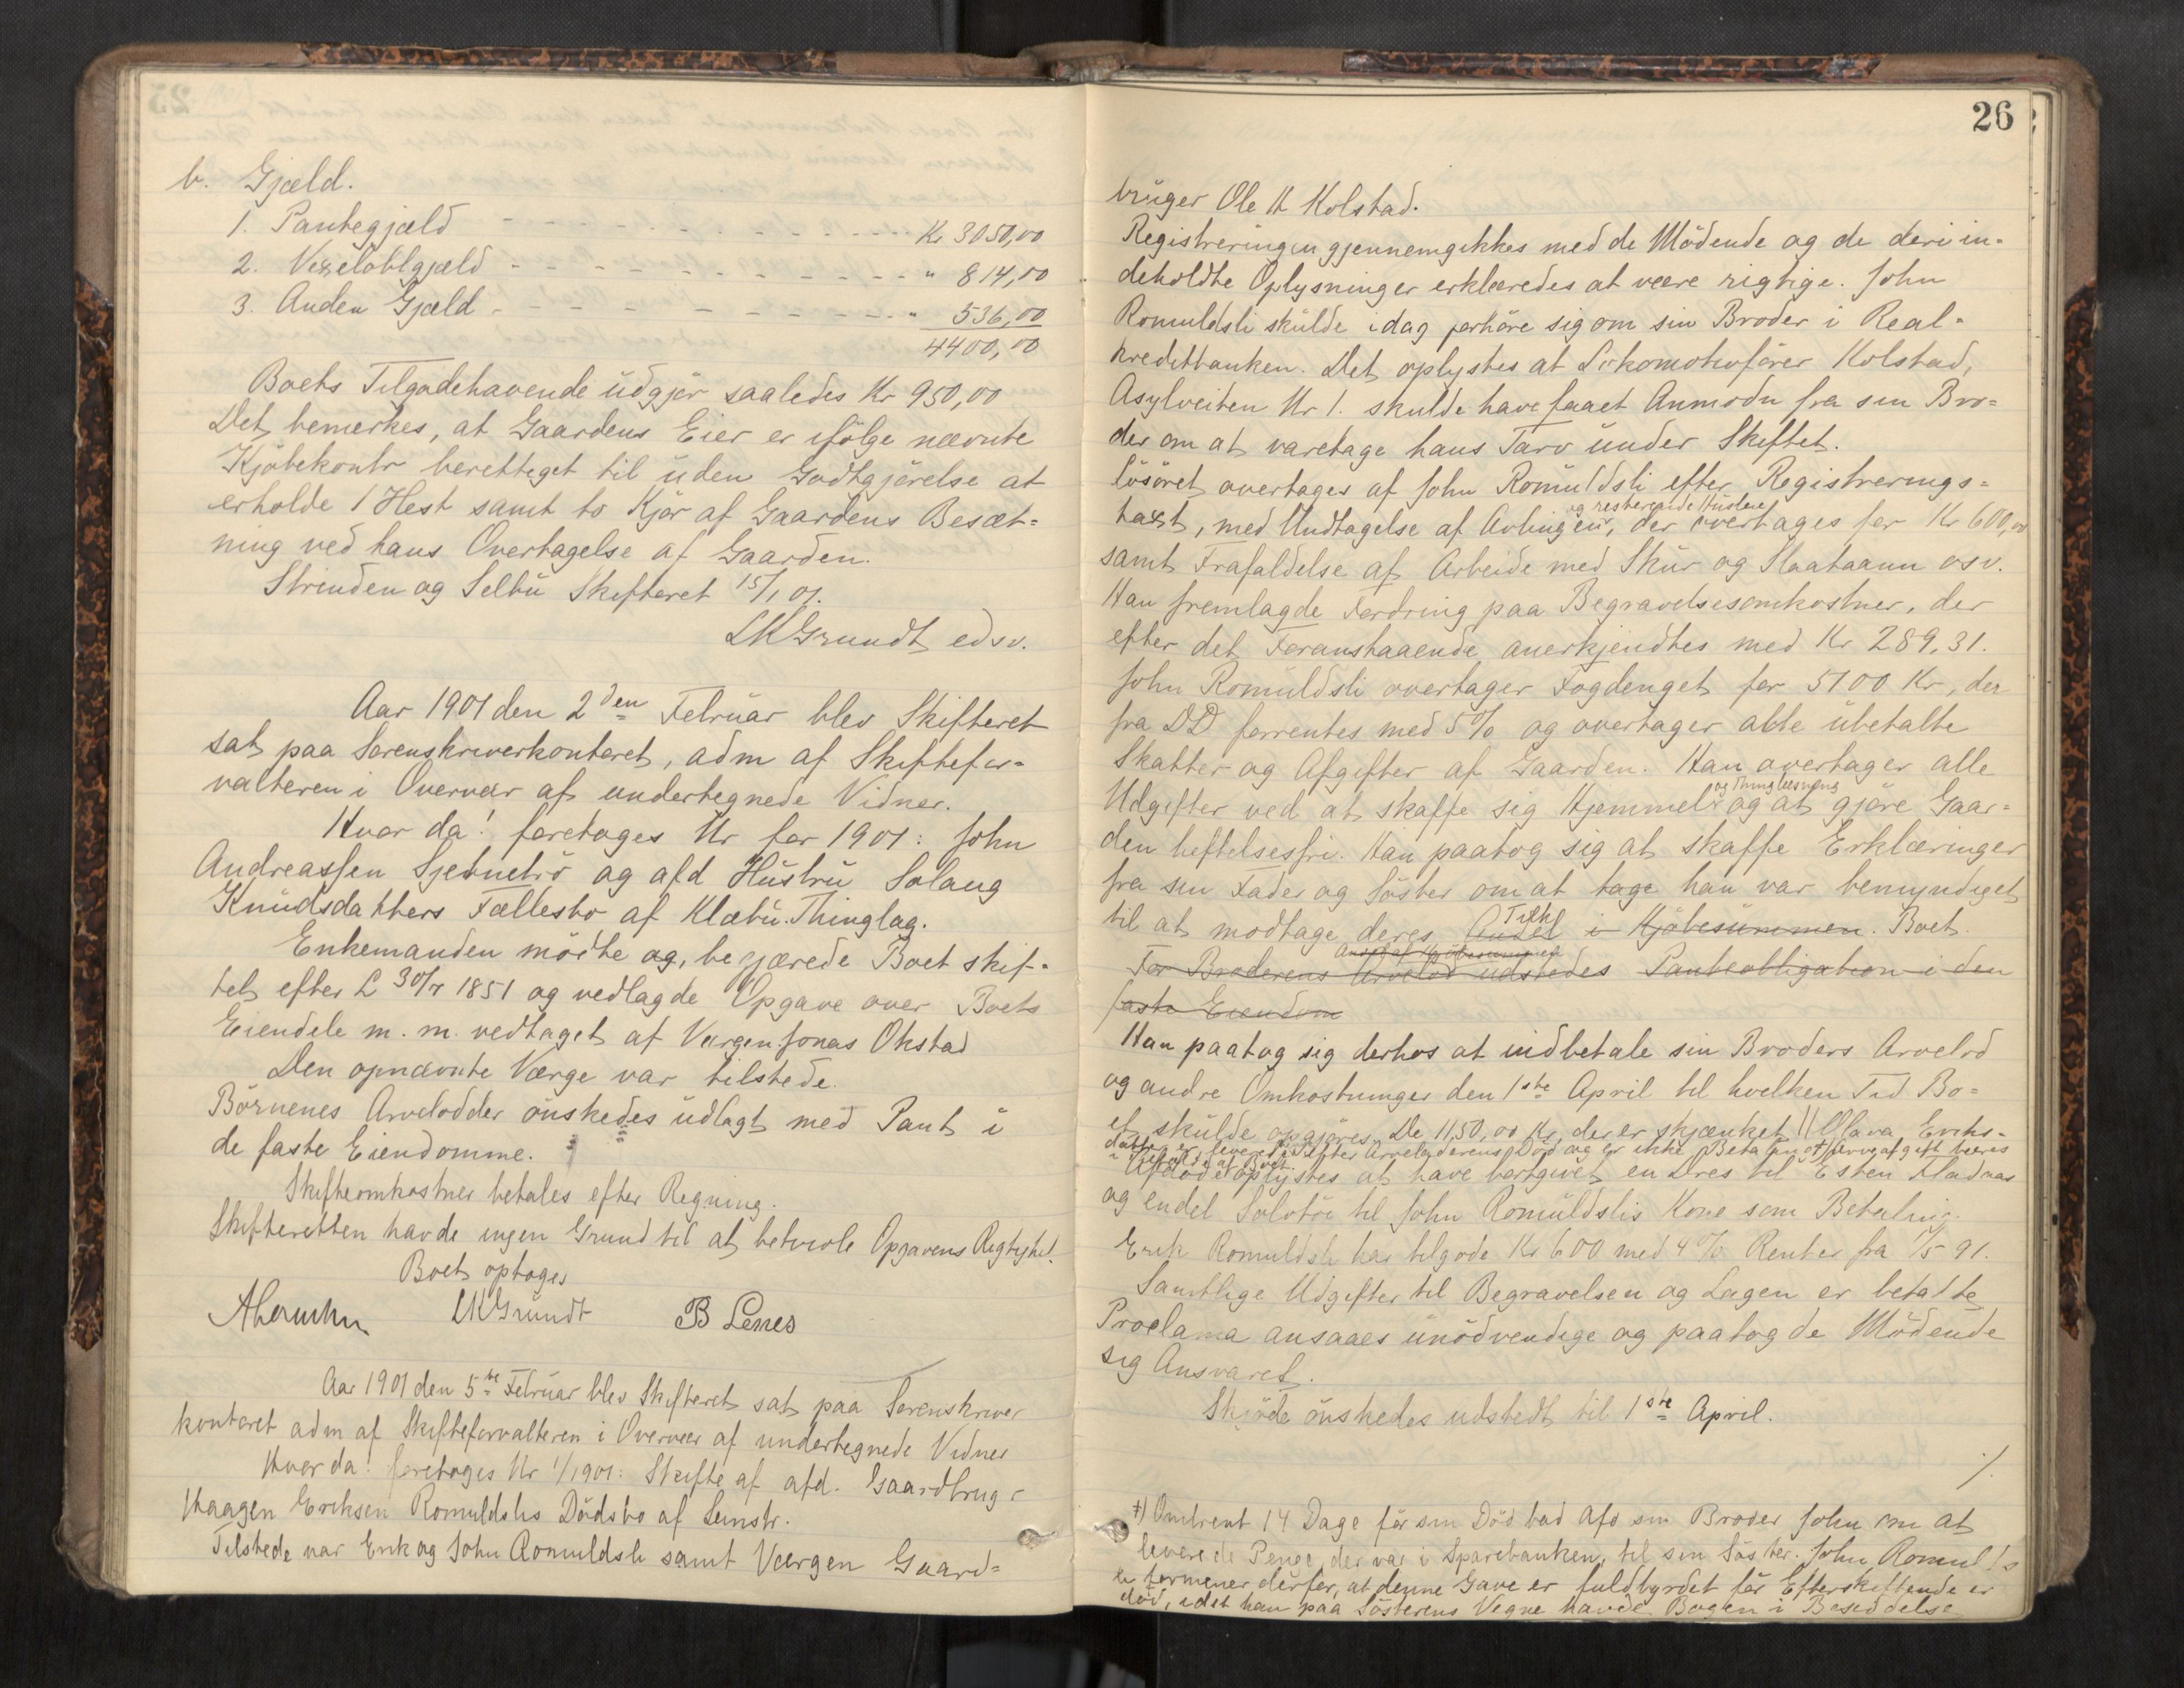 b. Gjæld.
1. Pantegjæld - - - - - - - - - - Kr 3050,00
2. Vexeloblgjæld - - - - - - - - - - " 814,00
3. Anden Gjæld - - - - - - - - - - " 536,00
4400,00
Boets Tilgodehavende udgjør saaledes Kr 950,00
Det bemerkes, at Gaardens Eier er ifölge nævnte
Kjöbekontr berettiget til uden Godtgjörelse at
erholde 1 Hest samt to Kjör af Gaardens Besæt=
ning ved hans Overtagelse af Gaarden.
Strinden og Selbu Skifteret 15/1 01.
LKGrundt edsv.
Aar 1901 den 2den Februar blev Skifteret
sat paa Sorenskriverkontoret, adm af Skiftefor=
valteren i Overvær af undertegnede Vidner.
Hvor da! foretoges Nr for 1901: John
Andreassen Sjetnetrö og afd Hustru Solaug
Knudsdatters Fællesbo af Klæbu Thinglag.
Enkemanden mödte og, begjærede Boet skif=
tet efter L 30/7 1851 og vedlagde Opgave over Boets
Eiendele m. m. vedtaget af Vergen Jonas Okstad
Den opnævnte Værge var tilstede.
Börnenes Arvelodder önskedes udlagt med Pant i
de faste Eiendomme.
Skifteomkostner betales efter Regning.
Skifteretten havde ingen Grund til at betvivle Opgavens Rigtighet.
Boet optoges
LKGrundt B Lenes
Aar 1901 den 5te Februar blev Skifteret sat paa Sorenskriver
kontoret adm af Skifteforvalteren i Overvær af undertegnede Vidner
Hvor da! foretoges Nr 1/1901: Skifte af afd. Gaardbruger
Haagen Eriksen Romuldslis Dödsbo af Leinstr.
Tilstede var Erik og John Romuldsli samt Værgen Gaard=
26
bruger Ole H Kolstad.
Registreringen gjennemgikkes med de Mödende og de deri in=
deholdte Oplysninger erklæredes at være rigtige. John
Romuldsli skulde idag forhöre sig om sin Broder i Real=
kreditbanken. Det oplystes at Lokomotivförer Kolstad,
Asylveiten Nr 1. skulde have faaet Anmodn fra sin Bro=
der om at varetage hans Tarv under Skiftet.
lösöret overtages af John Romuldsli efter Registrerings=
og resterende Husleie
taxt, med Undtagelse af Avlingen, der overtages for Kr 600,00
samt Frafaldelse af Arbeide med Skur og Slaataann osv.
Han fremlagde Fordring paa Begravelsesomkostner, der
efter det Foranstaaende anerkjendtes med Kr 289,31.
John Romuldsli overtager Fogdenget for 5100 Kr, der
fra DD forrentes med 5% og overtager alle ubetalte
Skatter og Afgifter af Gaarden. Han overtager alle
og Thinglæsning
Udgifter ved at skaffe sig Hjemmel og at gjöre Gaar=
den heftelsesfri. Han paatog sig at skaffe Erklæringer
fra sin Fader og Söster om at tage han var bemyndiget
Tilk
til at modtage deres Andel i Kjöbesummen. Boet.
Andel af Kjöbesummen
For Broderens Arvelod udstedes Panteobligation i den
faste Eiendom
Han paatog sig derhos at indbetale sin Broders Arvelod
og andre Omkostninger den 1ste April til hvilken Tid Bo=
et skulde opgjöres. De 1150,00 Kr, der er skjænket Olava Eriks=
datter er leveret efter Arveladerens Död og er ikke Betaling +) Arveafgift bæres
i Tilfælde af Boet.
Afdöde oplystes at have bortgivet en Dres til Esten
og endel Solvtöi til John Romuldslis Kone som Betaling.
Erik Romuldsli har tilgode Kr 600 med 4% Renter fra 1/5 91.
Samtlige Udgifter til Begravelsen og Lægen er betalte
Proclama ansaaes unödvendige og paatog de Mödende
sig Ansvaret.
Skjöde önskedes udstedt til 1ste April.
./.
+) Omtrent 14 Dage för sin Död bad Afd sin Broder John om at
levere de Penge, der var i Sparebanken, til sin Söster. John Romulds
li formener derfor, at denne Gave er fuldbyrdet för Efterskiftende er
död, idet han paa Sösterens Vegne havde Bogen i Besiddelse